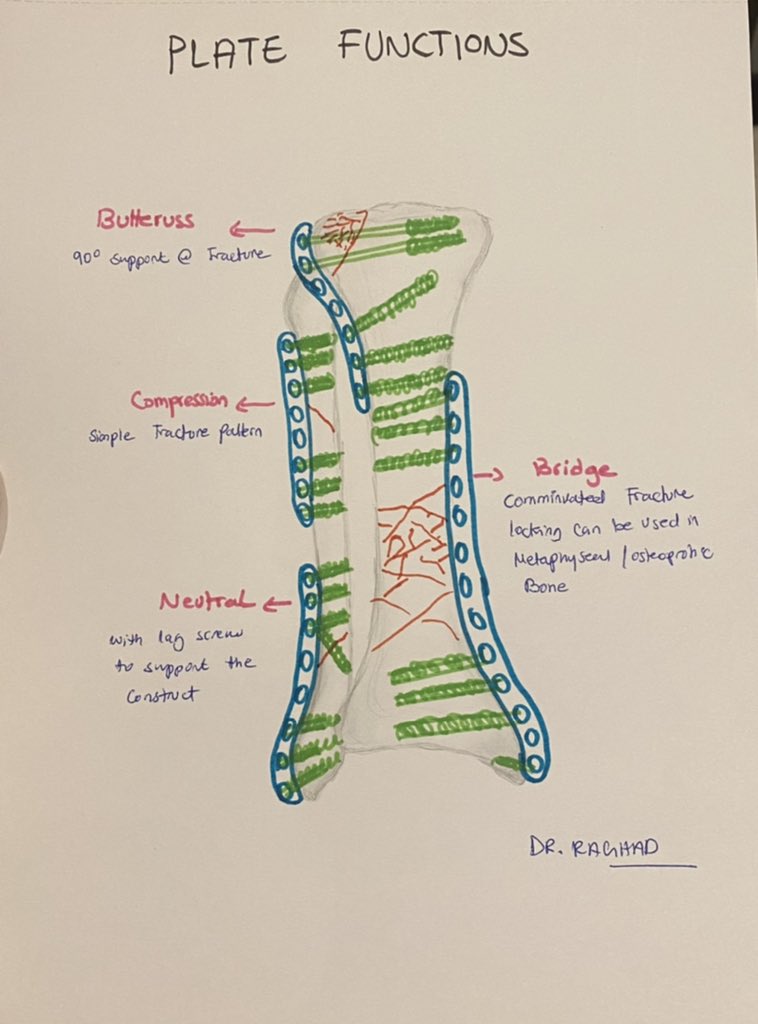 PLATE FUNCTIONS
Butteruss
90° support @ Fracture
Compression
Simple Fracture pattern
Bridge
Comminuated Fracture
locking can be used in
Metaphyseal / osteoprotic
Bone
Neutral
with lag screw
to support the
Construct
DR. RAGHAD